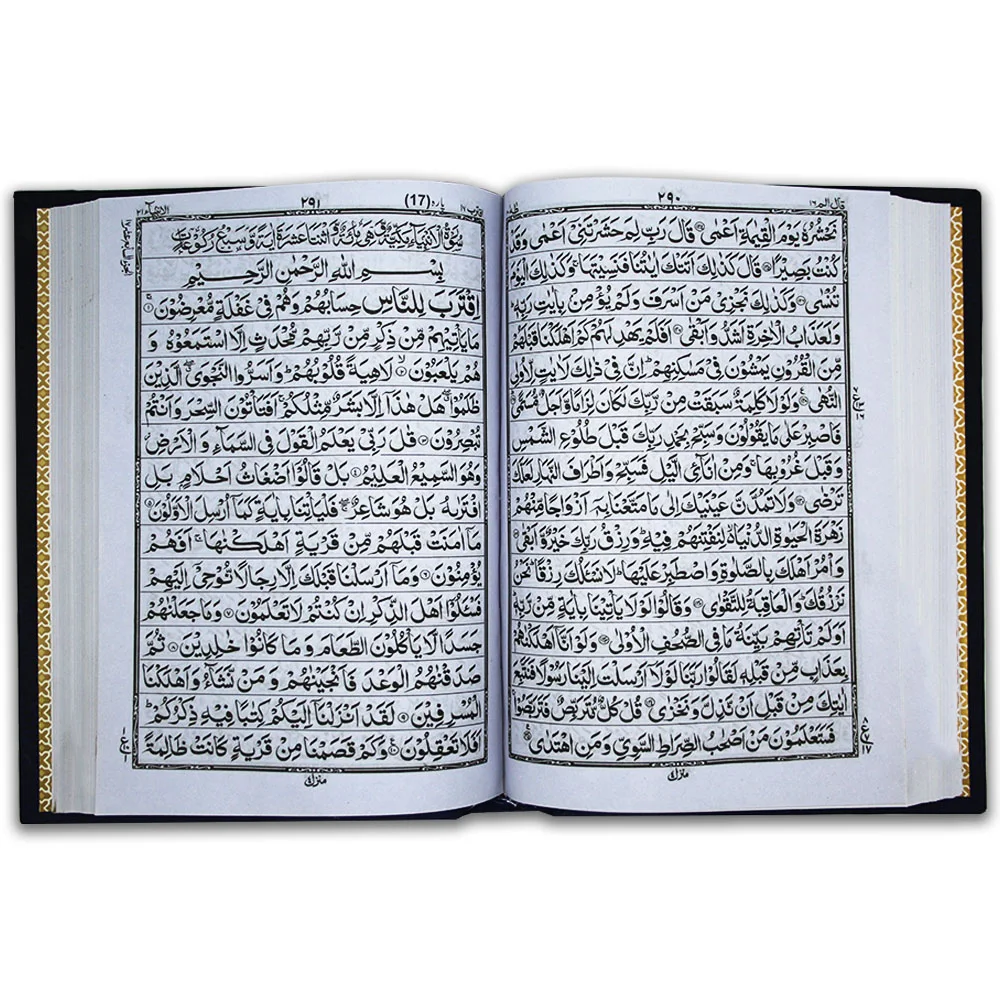 قال الم ١٦ ٢٩٠ طٰهٰ
نَحْشُرُهٗ يَوْمَ الْقِيٰمَةِ اَعْمٰى ۝ قَالَ رَبِّ لِمَ حَشَرْتَنِيْٓ اَعْمٰى وَقَدْ
كُنْتُ بَصِيْرًا ۝ قَالَ كَذٰلِكَ اَتَتْكَ اٰيٰتُنَا فَنَسِيْتَهَا ۚ وَكَذٰلِكَ الْيَوْمَ
تُنْسٰى ۝ وَكَذٰلِكَ نَجْزِيْ مَنْ اَسْرَفَ وَلَمْ يُؤْمِنْۢ بِاٰيٰتِ رَبِّهٖ ؕ
وَلَعَذَابُ الْاٰخِرَةِ اَشَدُّ وَاَبْقٰى ۝ اَفَلَمْ يَهْدِ لَهُمْ كَمْ اَهْلَكْنَا قَبْلَهُمْ
مِّنَ الْقُرُوْنِ يَمْشُوْنَ فِيْ مَسٰكِنِهِمْ ؕ اِنَّ فِيْ ذٰلِكَ لَاٰيٰتٍ لِّاُولِي
النُّهٰى ۝ وَلَوْلَا كَلِمَةٌ سَبَقَتْ مِنْ رَّبِّكَ لَكَانَ لِزَامًا وَّاَجَلٌ مُّسَمًّى ۝
فَاصْبِرْ عَلٰى مَا يَقُوْلُوْنَ وَسَبِّحْ بِحَمْدِ رَبِّكَ قَبْلَ طُلُوْعِ الشَّمْسِ
وَقَبْلَ غُرُوْبِهَا ۚ وَمِنْ اٰنَآئِ الَّيْلِ فَسَبِّحْ وَاَطْرَافَ النَّهَارِ لَعَلَّكَ
تَرْضٰى ۝ وَلَا تَمُدَّنَّ عَيْنَيْكَ اِلٰى مَا مَتَّعْنَا بِهٖٓ اَزْوَاجًا مِّنْهُمْ
زَهْرَةَ الْحَيٰوةِ الدُّنْيَا ۬ۙ لِنَفْتِنَهُمْ فِيْهِ ؕ وَرِزْقُ رَبِّكَ خَيْرٌ وَّاَبْقٰى ۝
وَاْمُرْ اَهْلَكَ بِالصَّلٰوةِ وَاصْطَبِرْ عَلَيْهَا ؕ لَا نَسْـَٔلُكَ رِزْقًا ؕ نَحْنُ
نَرْزُقُكَ ؕ وَالْعَاقِبَةُ لِلتَّقْوٰى ۝ وَقَالُوْا لَوْلَا يَاْتِيْنَا بِاٰيَةٍ مِّنْ رَّبِّهٖ ؕ
اَوَلَمْ تَاْتِهِمْ بَيِّنَةُ مَا فِي الصُّحُفِ الْاُوْلٰى ۝ وَلَوْ اَنَّآ اَهْلَكْنٰهُمْ
بِعَذَابٍ مِّنْ قَبْلِهٖ لَقَالُوْا رَبَّنَا لَوْلَآ اَرْسَلْتَ اِلَيْنَا رَسُوْلًا فَنَتَّبِعَ
اٰيٰتِكَ مِنْ قَبْلِ اَنْ نَّذِلَّ وَنَخْزٰى ۝ قُلْ كُلٌّ مُّتَرَبِّصٌ فَتَرَبَّصُوْا ۚ
فَسَتَعْلَمُوْنَ مَنْ اَصْحٰبُ الصِّرَاطِ السَّوِيِّ وَمَنِ اهْتَدٰى ۝
منزل
اقترب ١٧ پارہ (17) ٢٩١ الانبياء ٢١
سُوْرَةُ الْاَنْبِيَآءِ مَكِّيَّةٌ وَّهِيَ مِائَةٌ وَّاثْنَتَا عَشْرَةَ اٰيَةً وَّسَبْعُ رُكُوْعَاتٍ
بِسْمِ اللّٰهِ الرَّحْمٰنِ الرَّحِيْمِ
اِقْتَرَبَ لِلنَّاسِ حِسَابُهُمْ وَهُمْ فِيْ غَفْلَةٍ مُّعْرِضُوْنَ ۝
مَا يَاْتِيْهِمْ مِّنْ ذِكْرٍ مِّنْ رَّبِّهِمْ مُّحْدَثٍ اِلَّا اسْتَمَعُوْهُ وَ
هُمْ يَلْعَبُوْنَ ۝ لَاهِيَةً قُلُوْبُهُمْ ؕ وَاَسَرُّوا النَّجْوَى ۖ الَّذِيْنَ
ظَلَمُوْا ۖ هَلْ هٰذَآ اِلَّا بَشَرٌ مِّثْلُكُمْ ۚ اَفَتَاْتُوْنَ السِّحْرَ وَاَنْتُمْ
تُبْصِرُوْنَ ۝ قٰلَ رَبِّيْ يَعْلَمُ الْقَوْلَ فِي السَّمَآءِ وَ الْاَرْضِ ؗ
وَهُوَ السَّمِيْعُ الْعَلِيْمُ ۝ بَلْ قَالُوْٓا اَضْغَاثُ اَحْلَامٍۭ بَلِ
افْتَرٰىهُ بَلْ هُوَ شَاعِرٌ ۖ فَلْيَاْتِنَا بِاٰيَةٍ كَمَآ اُرْسِلَ الْاَوَّلُوْنَ ۝
مَآ اٰمَنَتْ قَبْلَهُمْ مِّنْ قَرْيَةٍ اَهْلَكْنٰهَا ۚ اَفَهُمْ
يُؤْمِنُوْنَ ۝ وَمَآ اَرْسَلْنَا قَبْلَكَ اِلَّا رِجَالًا نُّوْحِيْٓ اِلَيْهِمْ
فَسْـَٔلُوْٓا اَهْلَ الذِّكْرِ اِنْ كُنْتُمْ لَا تَعْلَمُوْنَ ۝ وَمَا جَعَلْنٰهُمْ
جَسَدًا لَّا يَاْكُلُوْنَ الطَّعَامَ وَ مَا كَانُوْا خٰلِدِيْنَ ۝ ثُمَّ
صَدَقْنٰهُمُ الْوَعْدَ فَاَنْجَيْنٰهُمْ وَ مَنْ نَّشَآءُ وَاَهْلَكْنَا
الْمُسْرِفِيْنَ ۝ لَقَدْ اَنْزَلْنَآ اِلَيْكُمْ كِتٰبًا فِيْهِ ذِكْرُكُمْ ؕ
اَفَلَا تَعْقِلُوْنَ ۝ وَكَمْ قَصَمْنَا مِنْ قَرْيَةٍ كَانَتْ ظَالِمَةً
منزل